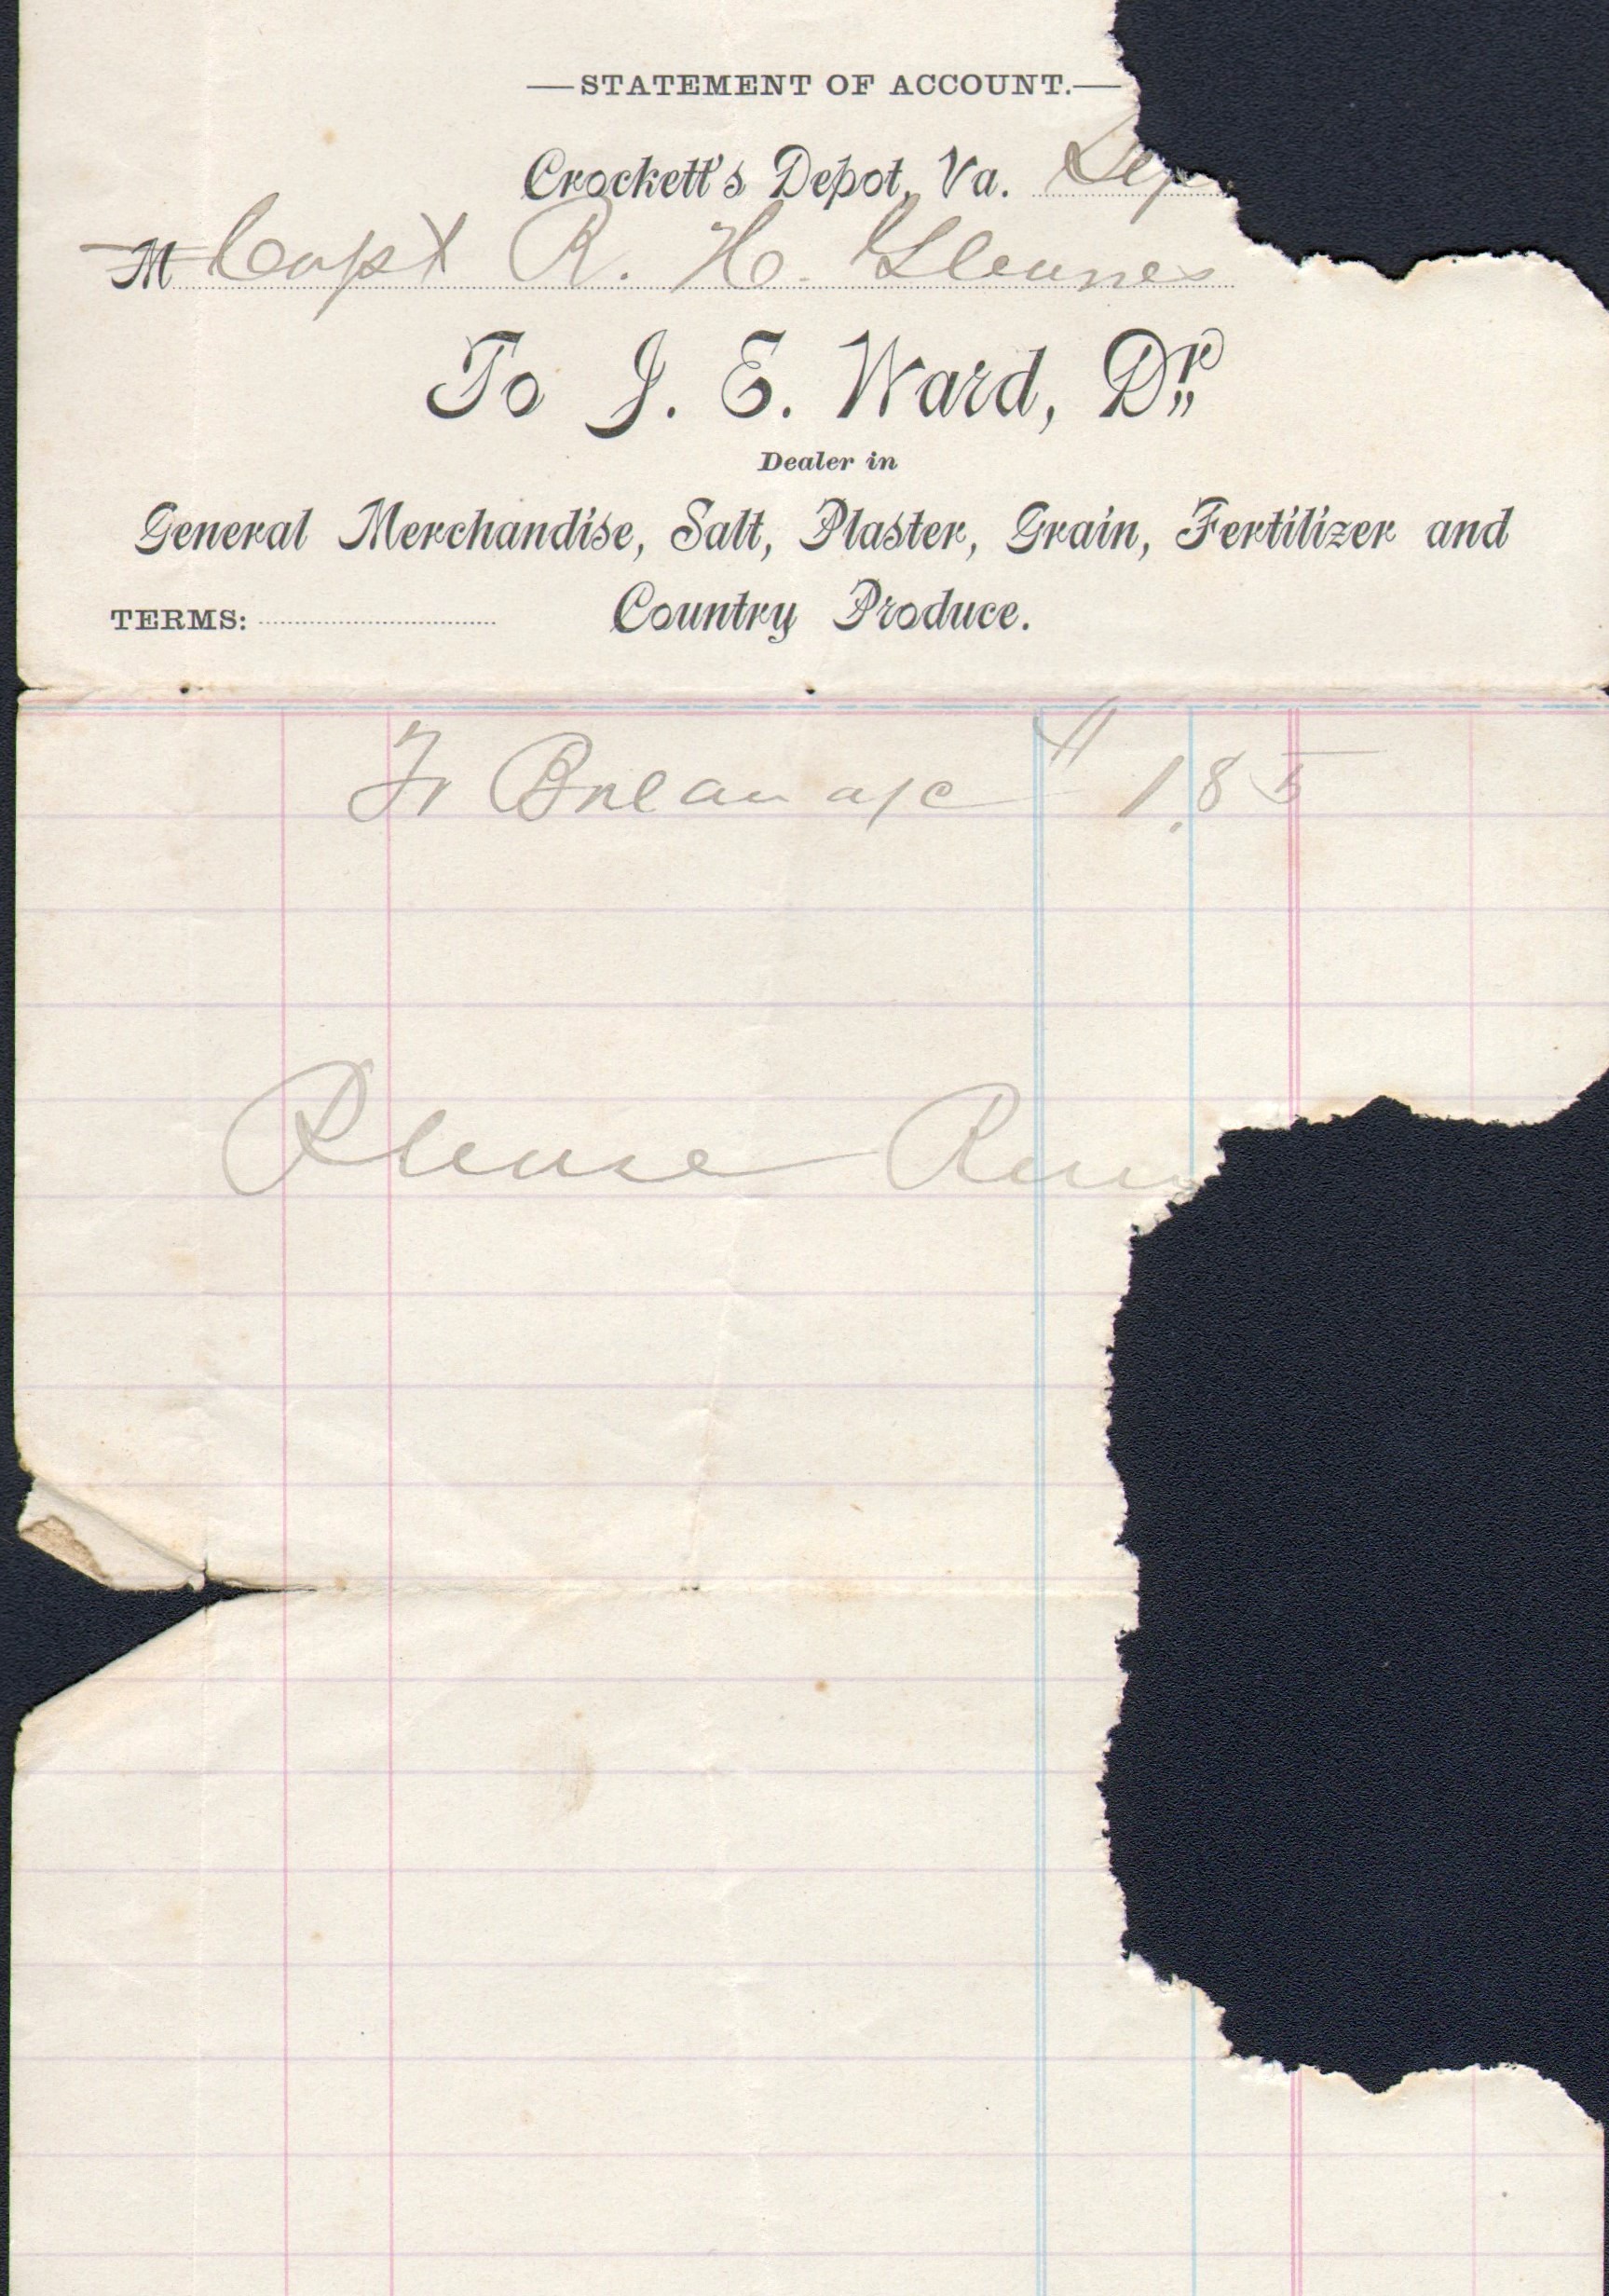 —STATEMENT OF ACCOUNT.—
Crockett's Depot, Va. Sep
M Capt R. H. Gleaves
To J. E. Ward, Dr.
Dealer in
General Merchandise, Salt, Plaster, Grain, Fertilizer and
Country Produce.
TERMS:
To a/c $ 1.85
Please